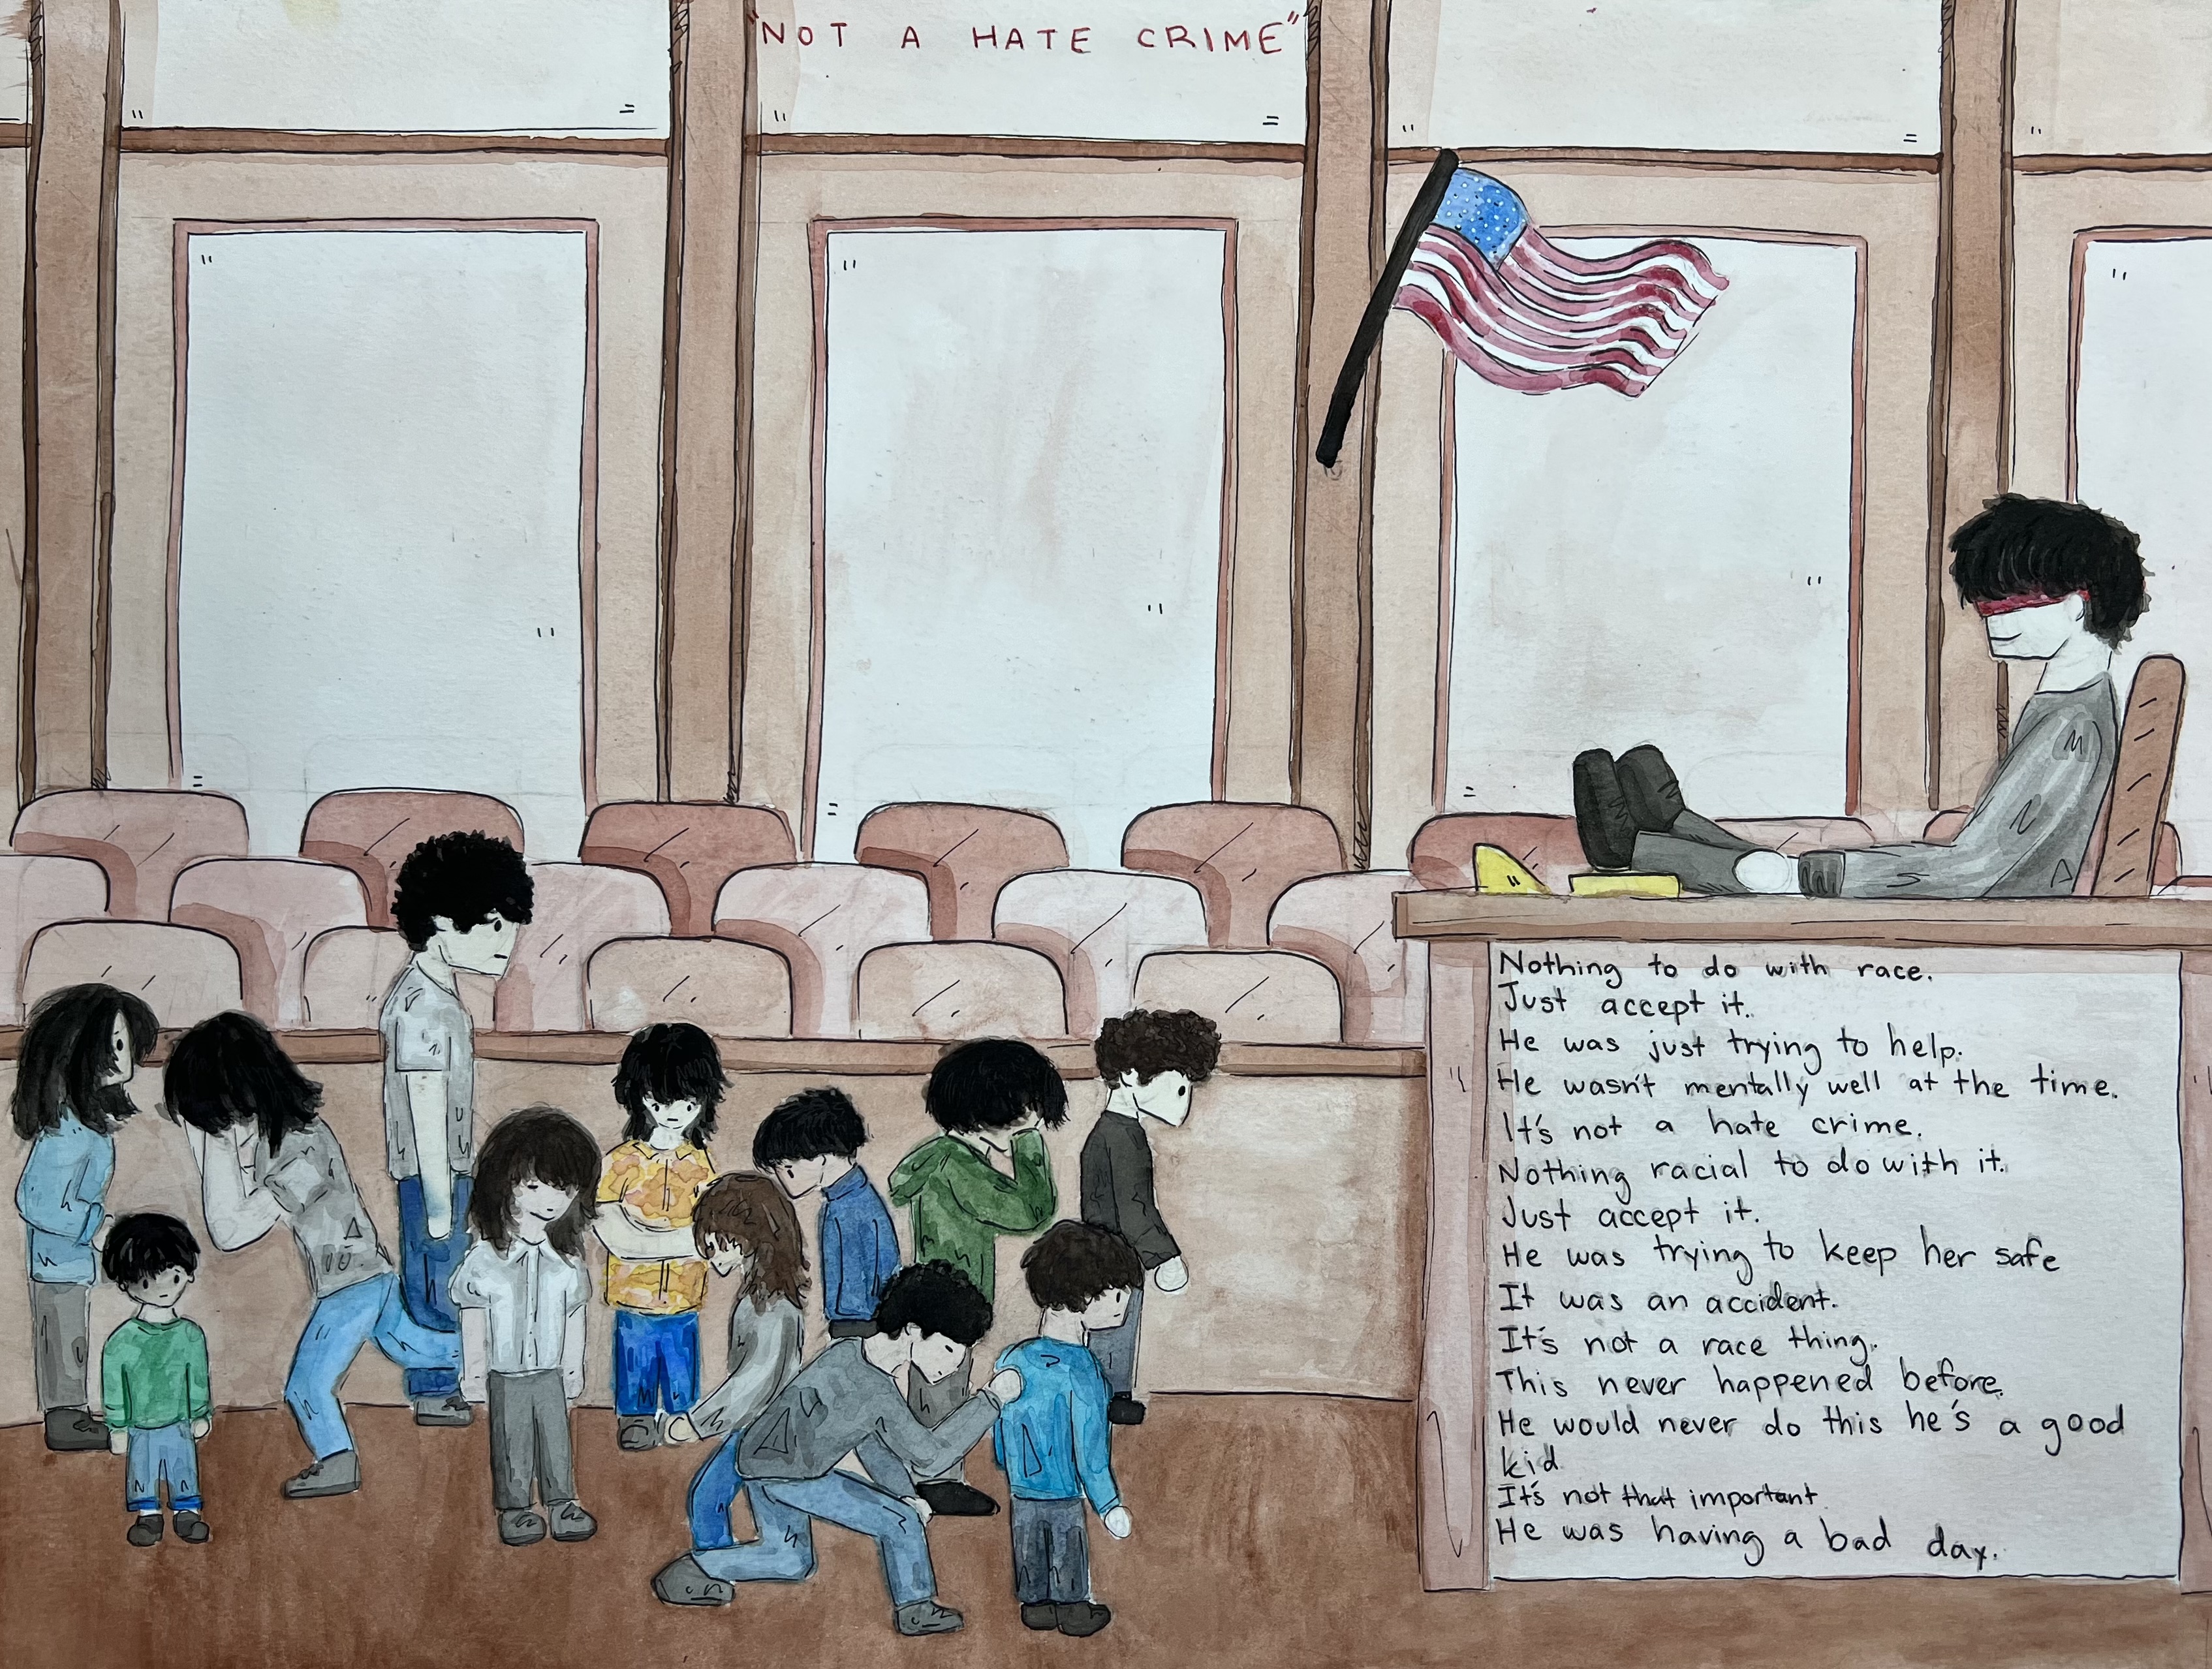 "NOT A HATE CRIME"
Nothing to do with race.
Just accept it.
He was just trying to help.
He wasn't mentally well at the time.
It's not a hate crime.
Nothing racial to do with it.
Just accept it.
He was trying to keep her safe
It was an accident.
It's not a race thing.
This never happened before.
He would never do this he's a good
kid
It's not that important
He was having a bad day.